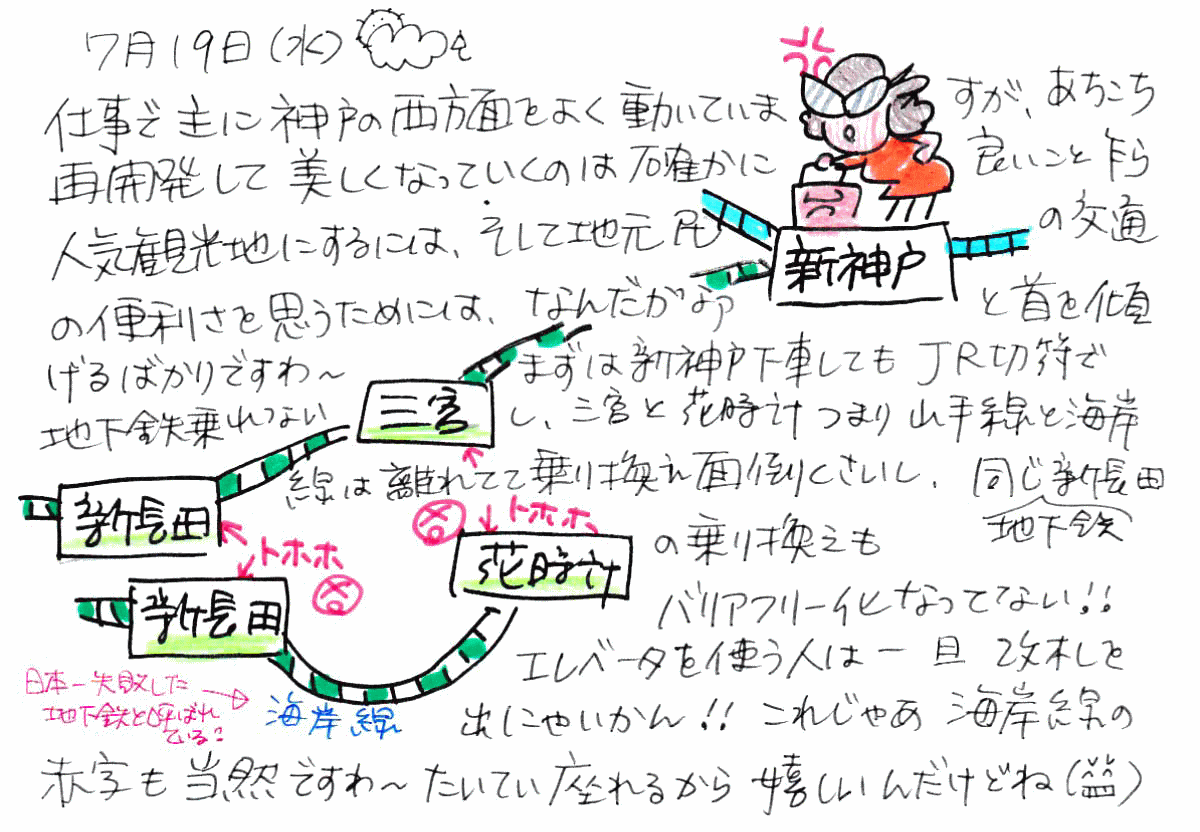 7月19日(水)
仕事で主に神戸の西方面をよく動いていますが、あちこち
再開発して美しくなっていくのは確かに良いこと乍ら
人気観光地にするには、そして地元民の交通
の便利さを思うためには、なんだかなアと首を傾
げるばかりですわ~まずは新神戸下車してもJR切符で
地下鉄乗れないし、三宮と花時計つまり山手線と海岸
線は離れてて乗り換え面倒くさいし、同じ新長田
地下鉄
の乗り換えも
バリアフリー化なってない!!
エレベータを使う人は一旦改札を
出にゃいかん!!これじゃあ海岸線の
赤字も当然ですわ~たいてい座れるから嬉しいんだけどね(益)
新神戸
三宮
新長田
トホホ
新長田
トホホ
花時計
海岸線
日本一失敗した
地下鉄と呼ばれ
ている?